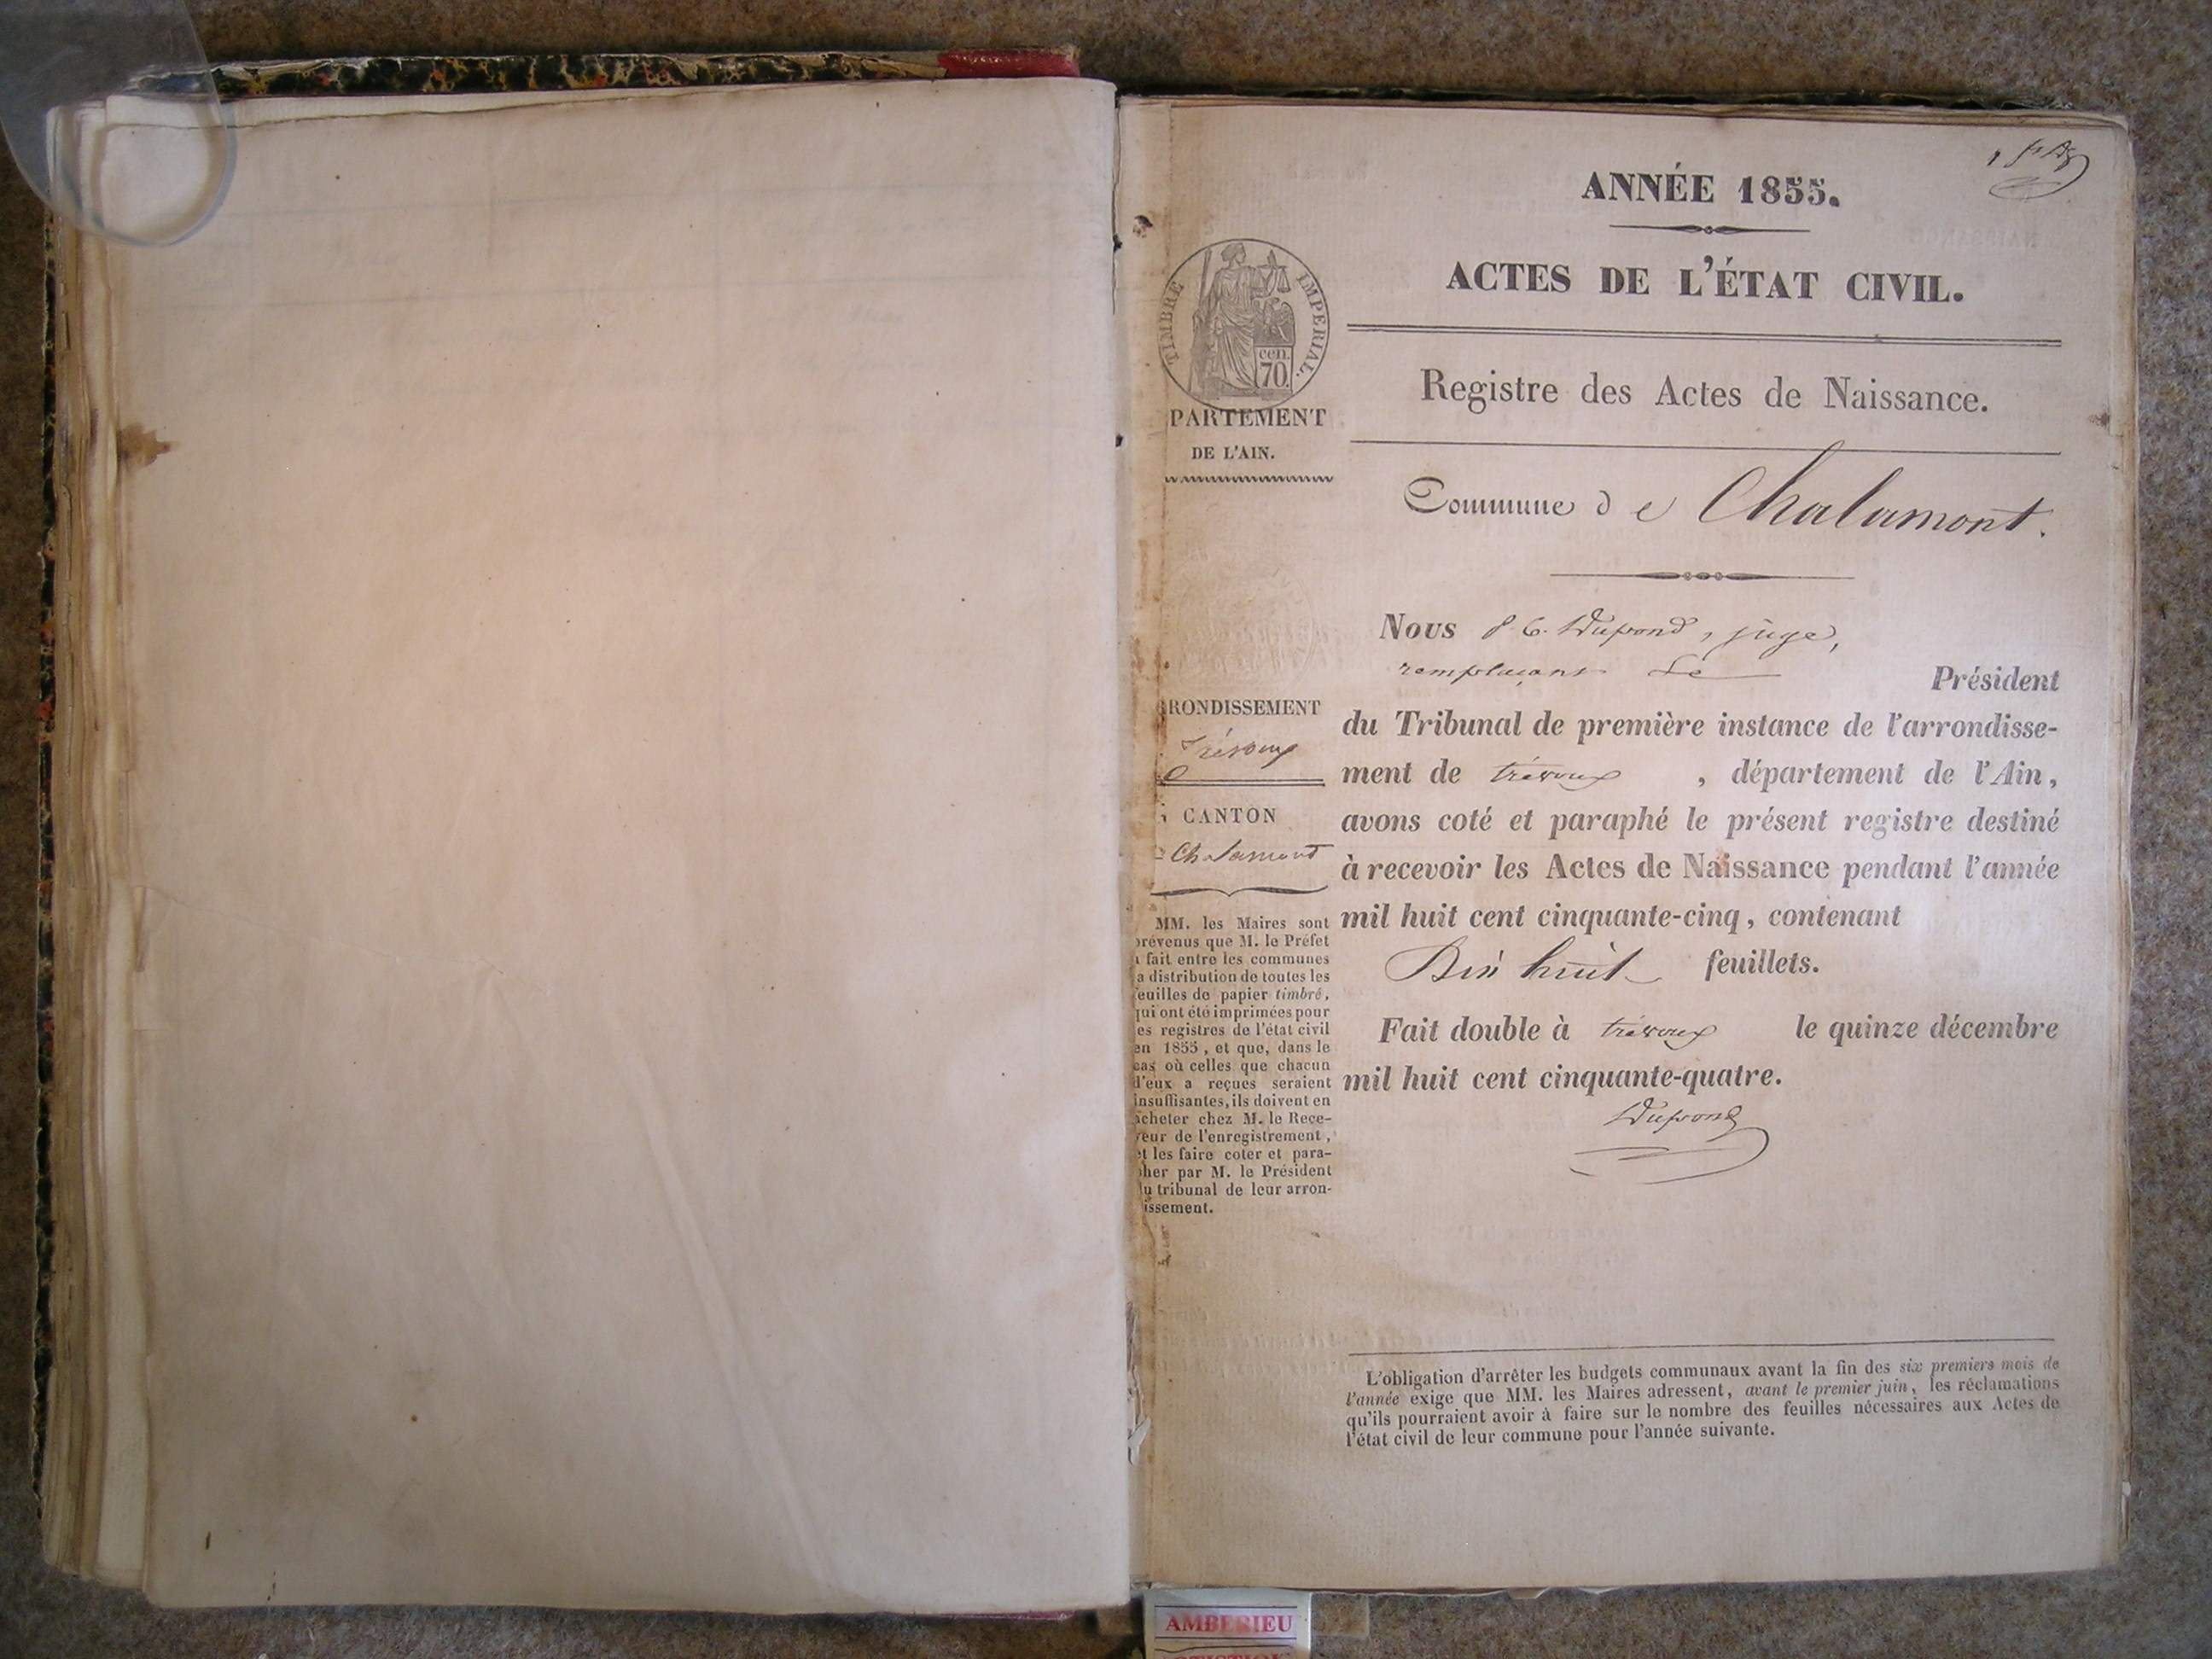 ANNÉE 1855.
ACTES DE L'ÉTAT CIVIL.
TIMBRE IMPERIAL.
cen.
70.
PARTEMENT
DE L'AIN.
Registre des Actes de Naissance.
Commune de Chalamont.
RONDISSEMENT
Trévoux
CANTON
Chalamont
MM. les Maires sont
prévenus que M. le Préfet
a fait entre les communes
la distribution de toutes les
feuilles de papier timbré,
qui ont été imprimées pour
les registres de l'état civil
en 1855, et que, dans le
cas où celles que chacun
d'eux a reçues seraient
insuffisantes, ils doivent en
acheter chez M. le Rece-
veur de l'enregistrement,
et les faire coter et para-
pher par M. le Président
du tribunal de leur arron-
issement.
Nous Dupond, juge,
remplaçant le Président
du Tribunal de première instance de l'arrondisse-
ment de trévoux, département de l'Ain,
avons coté et paraphé le présent registre destiné
à recevoir les Actes de Naissance pendant l'année
mil huit cent cinquante-cinq, contenant
Dix huit feuillets.
Fait double à trévoux le quinze décembre
mil huit cent cinquante-quatre.
Dupond
L'obligation d'arrêter les budgets communaux avant la fin des six premiers mois de
l'année exige que MM. les Maires adressent, avant le premier juin, les réclamations
qu'ils pourraient avoir à faire sur le nombre des feuilles nécessaires aux Actes de
l'état civil de leur commune pour l'année suivante.
AMBERIEU